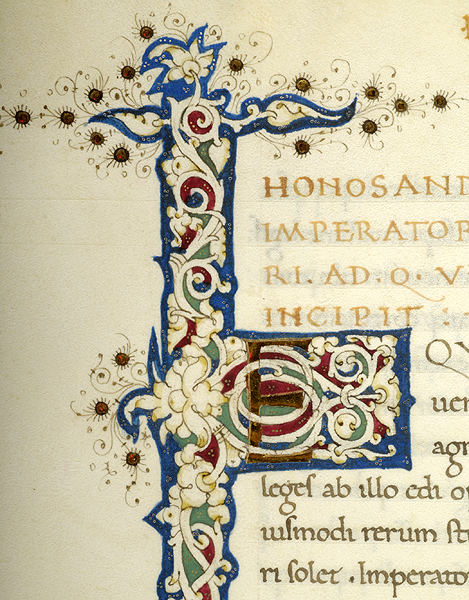 HONOSAND
IMPERATOR
RI. AD. Q. V
INCIPIT ·
E QV
uen
agr
leges ab illo edi o
iusmodi rerum stu
ri solet . Imperato